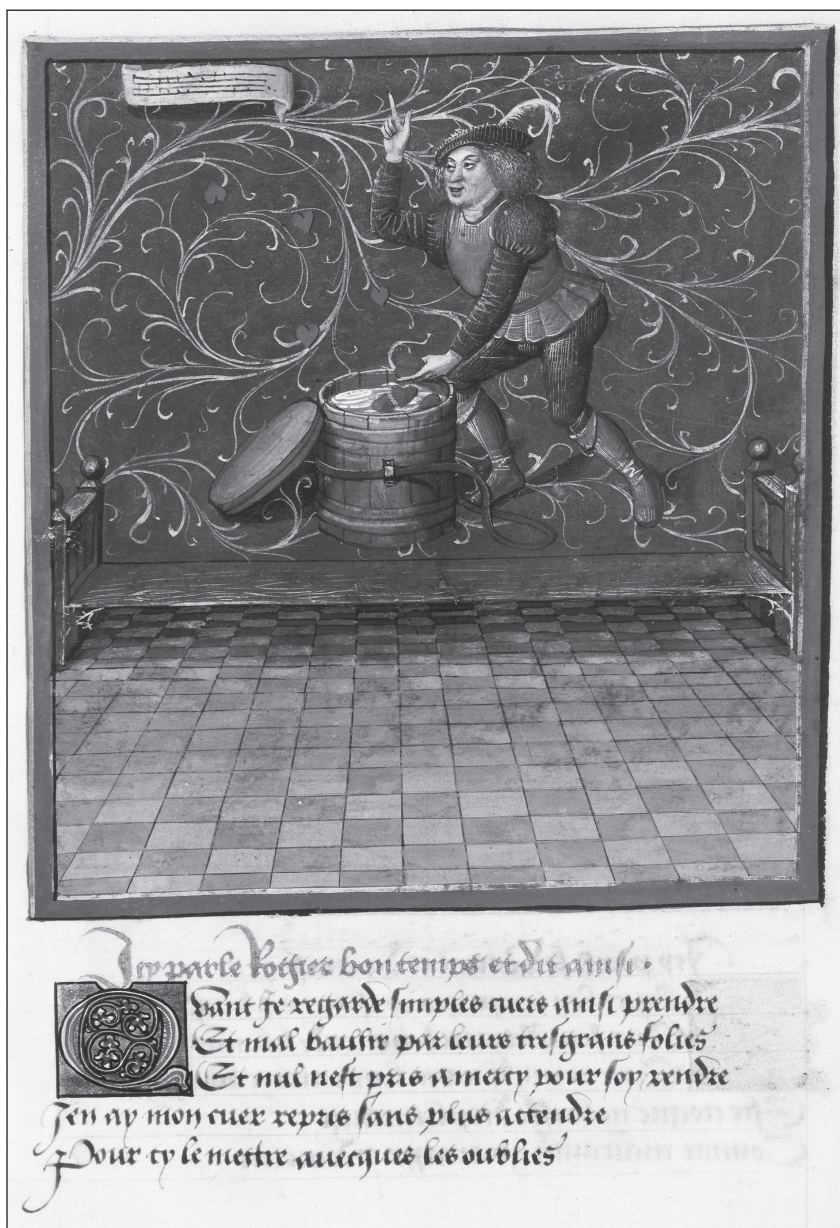 Icy parle Rogier bon temps et dit ainsi
Quant Je regarde simples cuers ainsi prendre
Et mal baillir par leurs tresgrans folies
Et nul nest pris a mercy pour soy rendre
Jen ay mon cuer repris sans plus actendre
Pour cy le mettre avecques les oublies